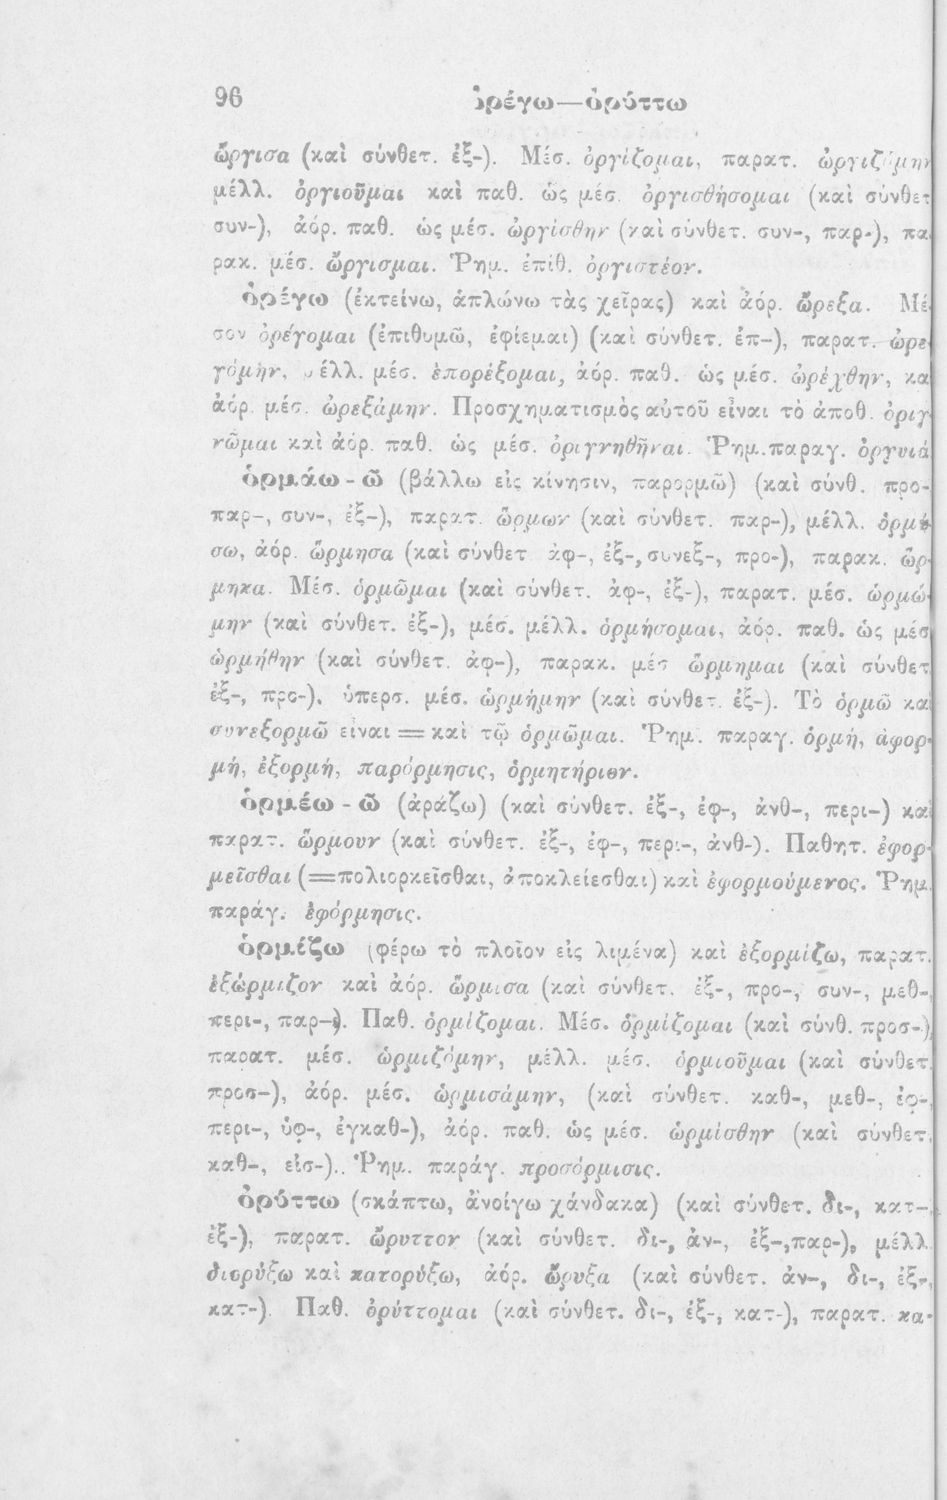 96 ὀρέγω—ὀρύττω
ὤργισα (καὶ σύνθετ. ἐξ-). Μέσ. ὀργίζομαι, παρατ. ὠργιζόμην
μέλλ. ὀργιοῦμαι καὶ παθ. ὡς μέσ. ὀργισθήσομαι (καὶ σύνθετ
συν-), ἀόρ. παθ. ὡς μέσ. ὠργίσθην (καὶ σύνθετ. συν-, παρ-), πα
ρακ. μέσ. ὤργισμαι. Ῥημ. ἐπίθ. ὀργιστέον.
ὀρέγω (ἐκτείνω, ἁπλώνω τὰς χεῖρας) καὶ ἀόρ. ὤρεξα. Μέ
σον ὀρέγομαι (ἐπιθυμῶ, ἐφίεμαι) (καὶ σύνθετ. ἐπ-), παρατ. ὠρε
γόμην, μέλλ. μέσ. ἐπορέξομαι, ἀόρ. παθ. ὡς μέσ. ὠρέχθην, κα
ἀόρ. μέσ. ὠρεξάμην. Προσχηματισμὸς αὐτοῦ εἶναι τὸ ἀποθ. ὀριγ
νῶμαι καὶ ἀόρ. παθ. ὡς μέσ. ὀριγνηθῆναι. Ῥημ.παραγ. ὀργυιά
ὁρμάω-ῶ (βάλλω εἰς κίνησιν, παρορμῶ) (καὶ σύνθ. προ-
παρ-, συν-, ἐξ-), παρατ. ὥρμων (καὶ σύνθετ. παρ-), μέλλ. ὁρμή-
σω, ἀόρ. ὥρμησα (καὶ σύνθετ ἀφ-, ἐξ-, συνεξ-, προ-), παρακ. ὥρ-
μηκα. Μέσ. ὁρμῶμαι (καὶ σύνθετ. ἀφ-, ἐξ-), παρατ. μέσ. ὡρμώ-
μην (καὶ σύνθετ. ἐξ-), μέσ. μέλλ. ὁρμήσομαι, ἀόρ. παθ. ὡς μέσ
ὡρμήθην (καὶ σύνθετ. ἀφ-), παρακ. μέσ ὥρμημαι (καὶ σύνθετ
ἐξ-, προ-). ὑπερσ. μέσ. ὡρμήμην (καὶ σύνθετ. ἐξ-). Τὸ ὁρμῶ και
συνεξορμῶ εἶναι = καὶ τῷ ὁρμῶμαι. Ῥημ. παραγ. ὁρμή, ἀφορ-
μή, ἐξορμή, παρόρμησις, ὁρμητήριον.
ὁρμέω-ῶ (ἀράζω) (καὶ σύνθετ. ἐξ-, ἐφ-, ἀνθ-, περι-) και
παρατ. ὥρμουν (καὶ σύνθετ. ἐξ-, ἐφ-, περι-, ἀνθ-). Παθητ. ἐφορ-
μεῖσθαι (=πολιορκεῖσθαι, ἀποκλείεσθαι) καὶ ἐφορμούμενος. Ῥημ.
παράγ. ἐφόρμησις.
ὁρμίζω (φέρω τὸ πλοῖον εἰς λιμένα) καὶ ἐξορμίζω, παρατ.
ἐξώρμιζον καὶ ἀόρ. ὥρμισα (καὶ σύνθετ. ἐξ-, προ-, συν-, μεθ-,
περι-, παρ-). Παθ. ὁρμίζομαι. Μέσ. ὁρμίζομαι (καὶ σύνθ. προσ-)
παρατ. μέσ. ὡρμιζόμην, μέλλ. μέσ. ὁρμιοῦμαι (καὶ σύνθετ
προσ-), ἀόρ. μέσ. ὡρμισάμην, (καὶ σύνθετ. καθ-, μεθ-, ἐφ-,
περι-, ὑφ-, ἐγκαθ-), ἀόρ. παθ. ὡς μέσ. ὡρμίσθην (καὶ σύνθετ.
καθ-, εἰσ-).. Ῥημ. παράγ. προσόρμισις.
ὀρύττω (σκάπτω, ἀνοίγω χάνδακα) (καὶ σύνθετ. δι-, κατ-,
ἐξ-), παρατ. ὤρυττον (καὶ σύνθετ. δι-, ἀν-, ἐξ-,παρ-), μέλλ
διορύξω καὶ κατορύξω, ἀόρ. ὤρυξα (καὶ σύνθετ. ἀν-, δι-, ἐξ-,
κατ-). Παθ. ὀρύττομαι (καὶ σύνθετ. δι-, ἐξ-, κατ-), παρατ. κα-